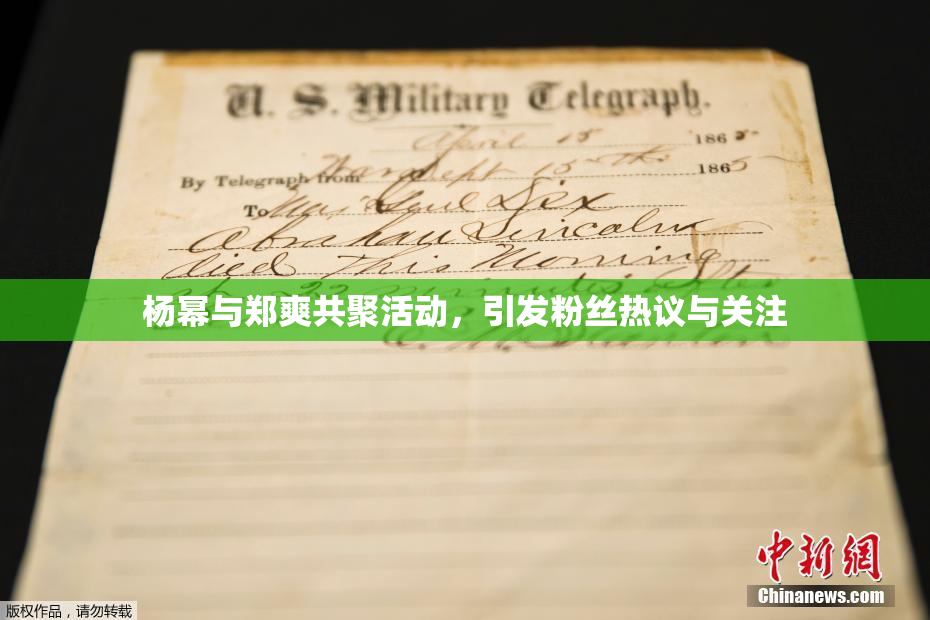 U. S. Military Telegraph.
April 15 1865
By Telegraph from War Dept 15th 1865
To Maj Genl Dix
Abraham Lincoln
died This Morning
at 22 minutes after
杨幂与郑爽共聚活动，引发粉丝热议与关注
E. M. Stanton
中新网
Chinanews.com
版权作品，请勿转载